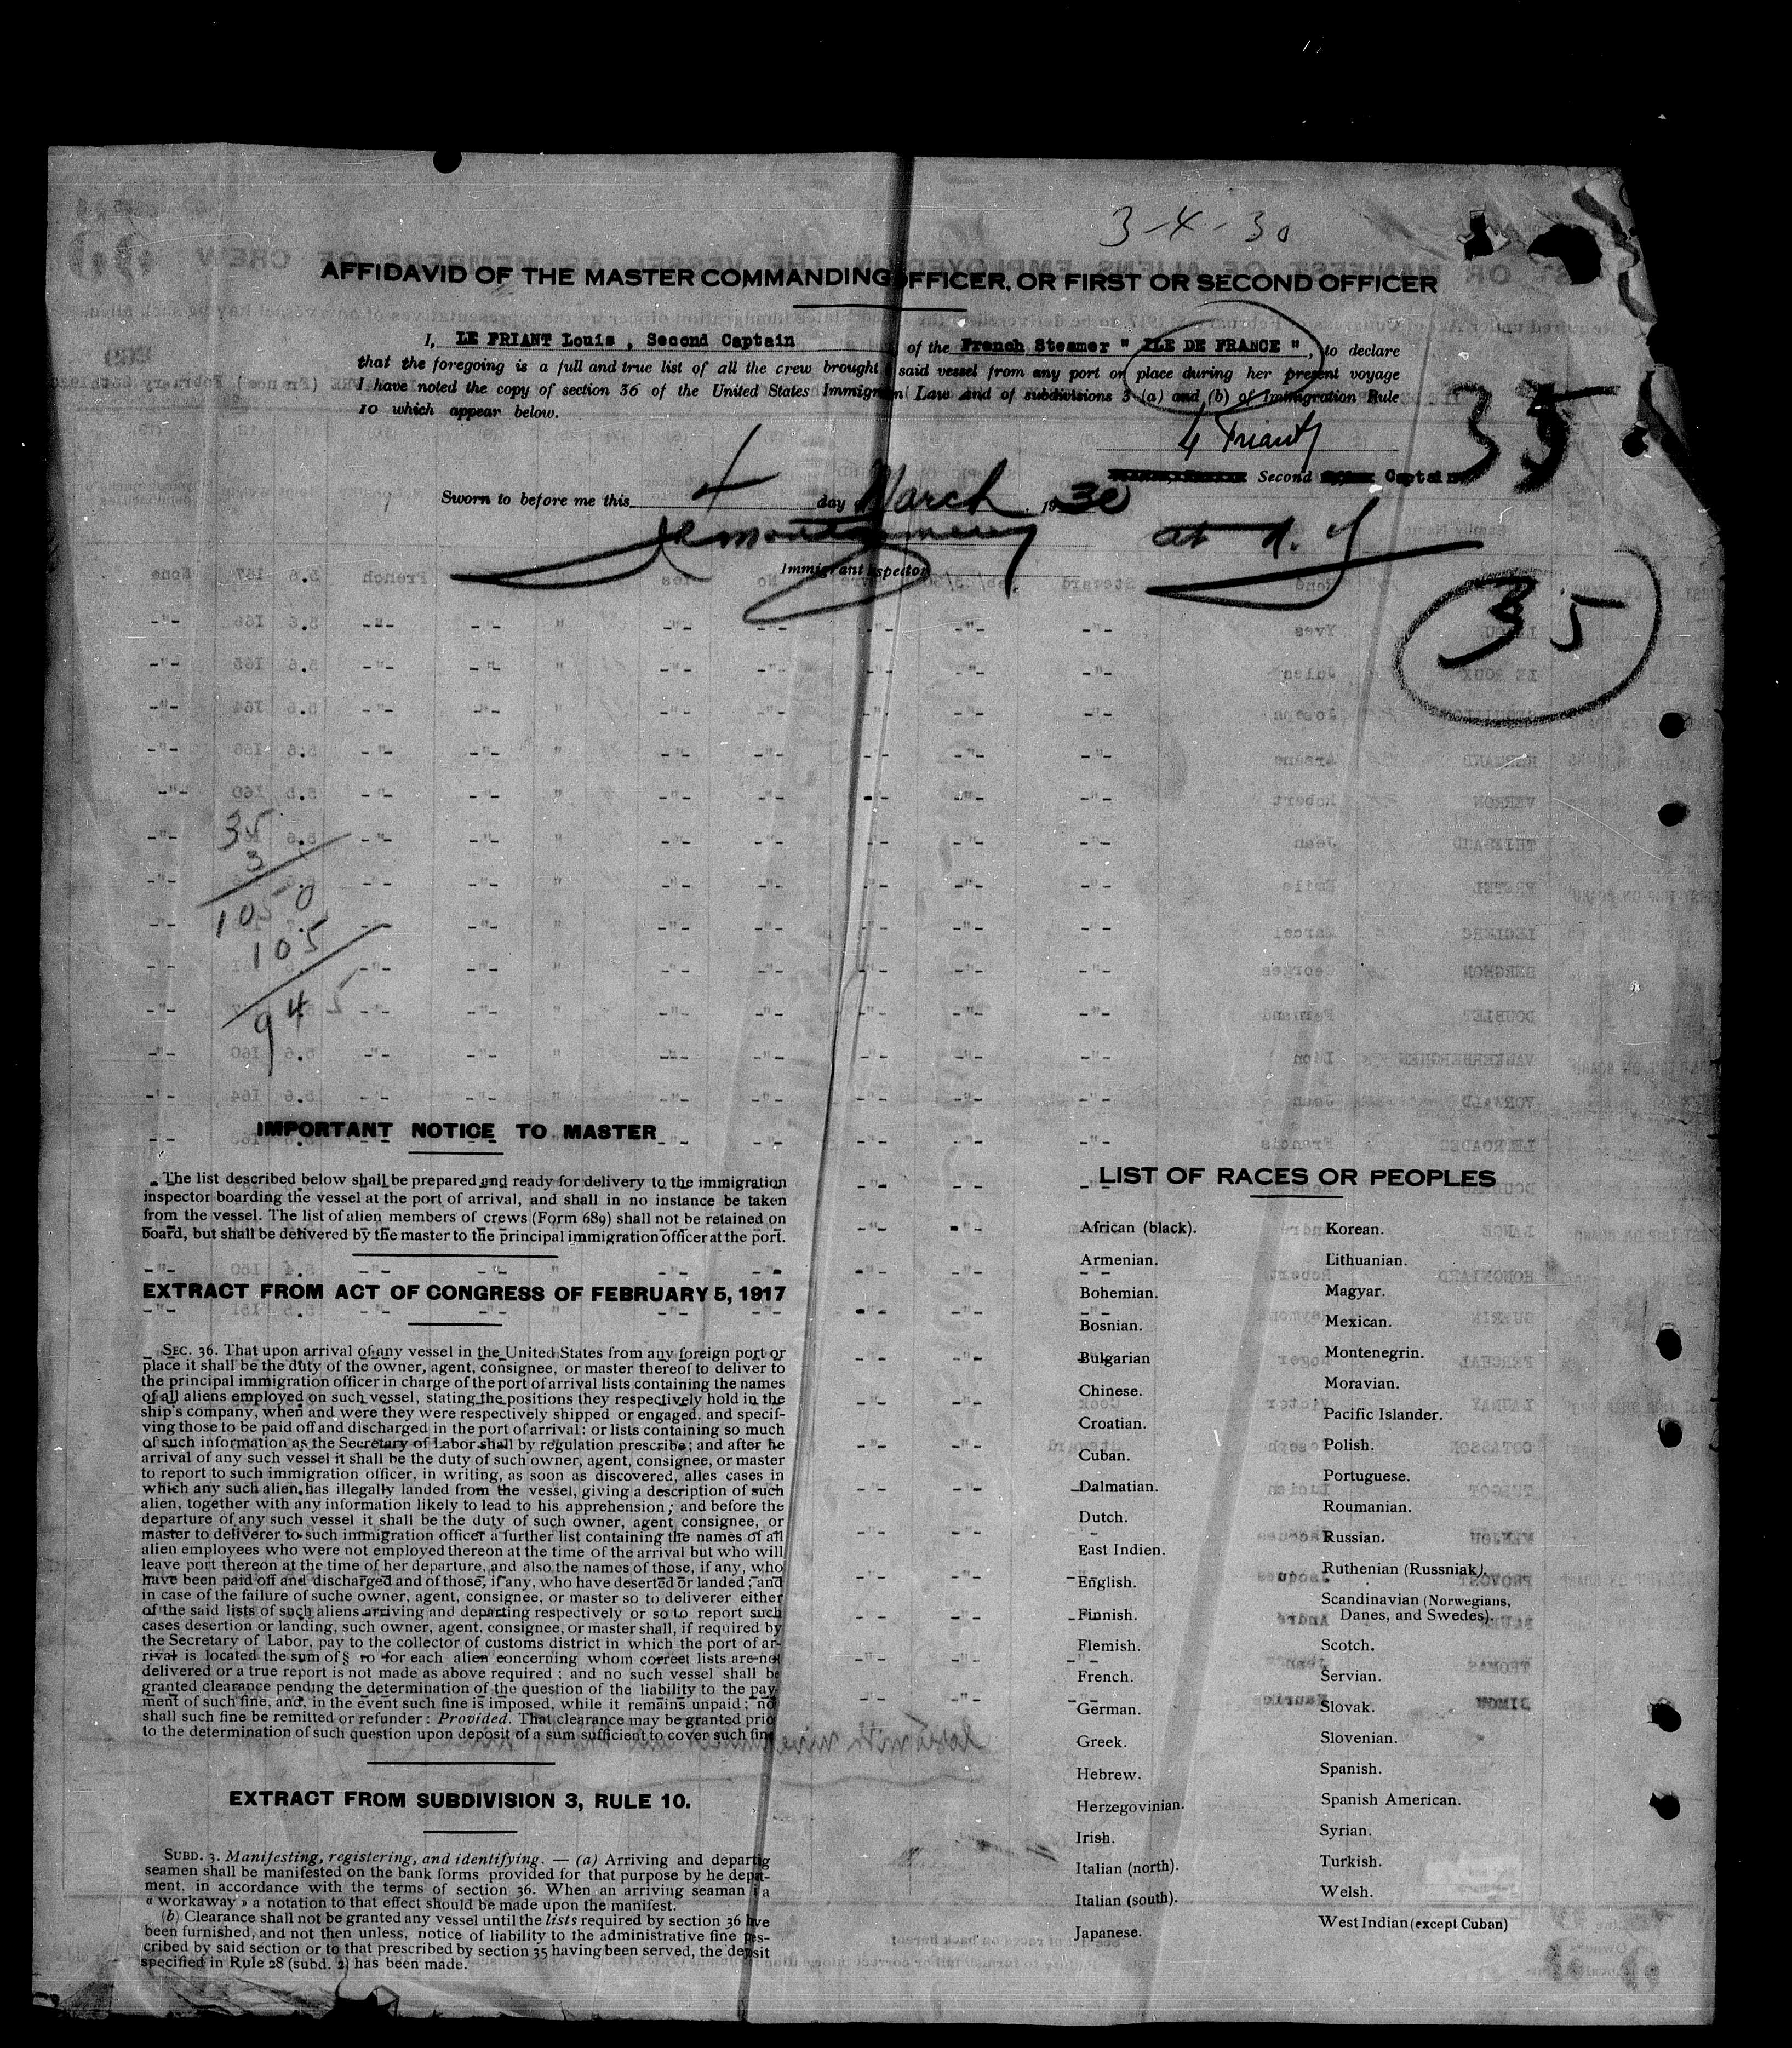 3-4-30
AFFIDAVID OF THE MASTER COMMANDING OFFICER, OR FIRST OR SECOND OFFICER
I, LE FRIANT Louis, Second Captain of the French Steamer " ILE DE FRANCE ", to declare
that the foregoing is a full and true list of all the crew brought said vessel from any port or place during her present voyage
I have noted the copy of section 36 of the United States Immigration Law and of subdivisions 3 (a) and (b) of Immigration Rule
10 which appear below.
35
Second Captain
Sworn to before me this 4 day March 1930
at N. Y
Immigrant Inspector
35
35
3
1050
105
945
IMPORTANT NOTICE TO MASTER
The list described below shall be prepared and ready for delivery to the immigration
inspector boarding the vessel at the port of arrival, and shall in no instance be taken
from the vessel. The list of alien members of crews (Form 689) shall not be retained on
board, but shall be delivered by the master to the principal immigration officer at the port.
EXTRACT FROM ACT OF CONGRESS OF FEBRUARY 5, 1917
SEC. 36. That upon arrival of any vessel in the United States from any foreign port or
place it shall be the duty of the owner, agent, consignee, or master thereof to deliver to
the principal immigration officer in charge of the port of arrival lists containing the names
of all aliens employed on such vessel, stating the positions they respectively hold in the
ship's company, when and were they were respectively shipped or engaged, and specif-
ving those to be paid off and discharged in the port of arrival: or lists containing so much
of such information as the Secretary of Labor shall by regulation prescribe; and after he
arrival of any such vessel it shall be the duty of such owner, agent, consignee, or master
to report to such immigration officer, in writing, as soon as discovered, alles cases in
which any such alien has illegally landed from the vessel, giving a description of such
alien, together with any information likely to lead to his apprehension; and before the
departure of any such vessel it shall be the duty of such owner, agent, consignee, or
master to deliverer to such immigration officer a further list containing the names of all
alien employees who were not employed thereon at the time of the arrival but who will
leave port thereon at the time of her departure, and also the names of those, if any, who
have been paid off and discharged and of those, if any, who have deserted or landed; and
in case of the failure of suche owner, agent, consignee, or master so to deliverer either
of the said lists of such aliens arriving and departing respectively or so to report such
cases desertion or landing, such owner, agent, consignee, or master shall, if required by
the Secretary of Labor, pay to the collector of customs district in which the port of ar-
rival is located the sum of § 10 for each alien concerning whom correct lists are not
delivered or a true report is not made as above required; and no such vessel shall be
granted clearance pending the determination of the question of the liability to the pay-
ment of such fine, and, in the event such fine is imposed, while it remains unpaid; no
shall such fine be remitted or refunder: Provided. That clearance may be granted prio
to the determination of such question upon deposit of a sum sufficient to cover such fine
EXTRACT FROM SUBDIVISION 3, RULE 10.
SUBD. 3. Manifesting, registering, and identifying. — (a) Arriving and departig
seamen shall be manifested on the bank forms provided for that purpose by he depat-
ment, in accordance with the terms of section 36. When an arriving seaman i a
« workaway » a notation to that effect should be made upon the manifest.
(b) Clearance shall not be granted any vessel until the lists required by section 36 hve
been furnished, and not then unless, notice of liability to the administrative fine pes-
cribed by said section or to that prescribed by section 35 having been served, the deposit
specified in Rule 28 (subd. 2) has been made.
LIST OF RACES OR PEOPLES
African (black).
Armenian.
Bohemian.
Bosnian.
Bulgarian
Chinese.
Croatian.
Cuban.
Dalmatian.
Dutch.
East Indien.
English.
Finnish.
Flemish.
French.
German.
Greek.
Hebrew.
Herzegovinian.
Irish.
Italian (north).
Italian (south).
Japanese.
Korean.
Lithuanian.
Magyar.
Mexican.
Montenegrin.
Moravian.
Pacific Islander.
Polish.
Portuguese.
Roumanian.
Russian.
Ruthenian (Russniak).
Scandinavian (Norwegians,
Danes, and Swedes).
Scotch.
Servian.
Slovak.
Slovenian.
Spanish.
Spanish American.
Syrian.
Turkish.
Welsh.
West Indian (except Cuban)